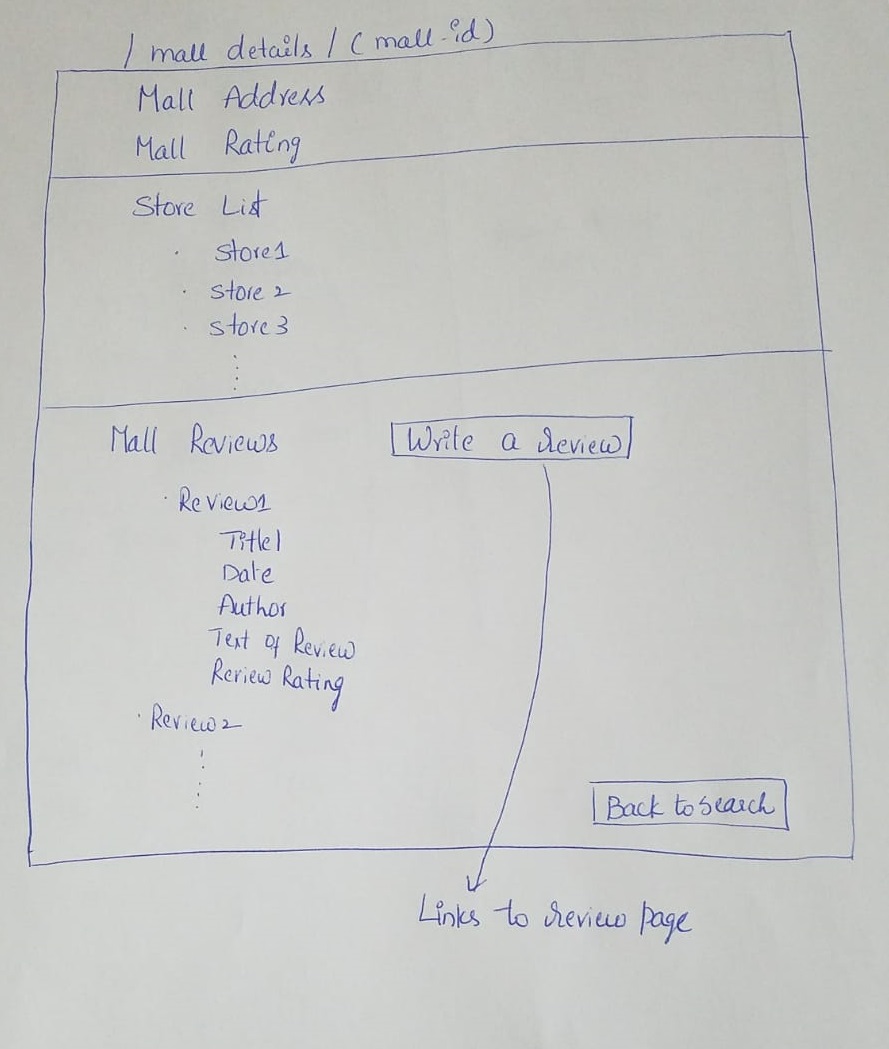 / mall details / ( mall-id )
Mall Address
Mall Rating
Store List
· Store1
· Store 2
· Store 3
Mall Reviews
Write a Review
· Review1
Title1
Date
Author
Text of Review
Review Rating
· Review 2
Back to Search
Links to review page